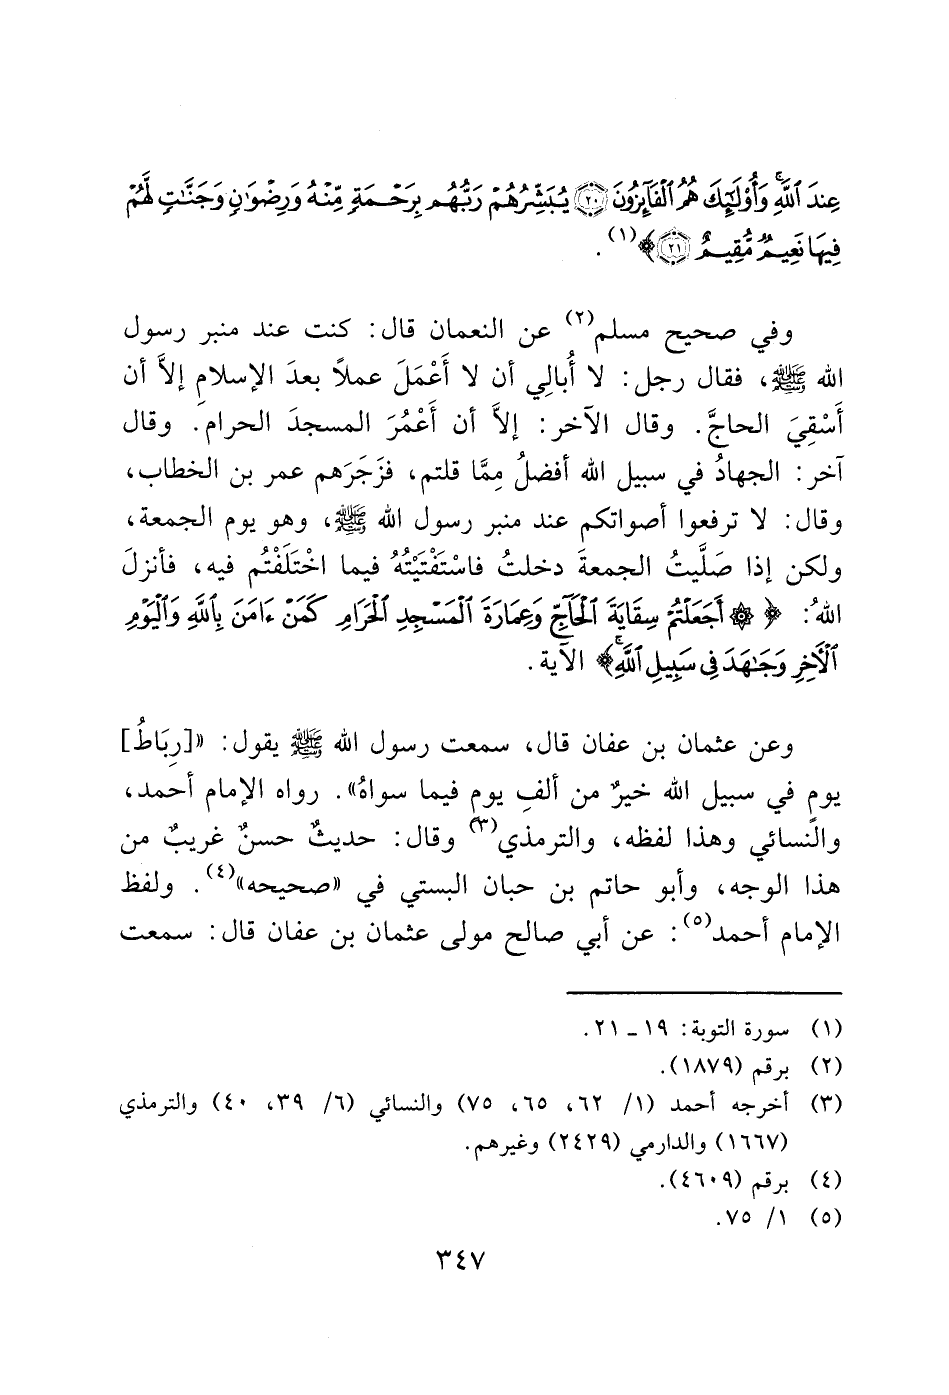 عِندَ ٱللَّهِ ۚ وَأُوْلَٰٓئِكَ هُمُ ٱلْفَآئِزُونَ ﴿٢٠﴾ يُبَشِّرُهُمْ رَبُّهُم بِرَحْمَةٍ مِّنْهُ وَرِضْوَٰنٍ وَجَنَّٰتٍ لَّهُمْ
فِيهَا نَعِيمٌ مُّقِيمٌ ﴿٢١﴾﴾(١).
وفي صحيح مسلم(٢) عن النعمان قال: كنت عند منبر رسول
الله ﷺ، فقال رجل: لا أُبالِي أن لا أَعْمَلَ عملاً بعدَ الإسلامِ إلاَّ أن
أَسْقِيَ الحاجَّ. وقال الآخر: إلاَّ أن أَعْمُرَ المسجدَ الحرام. وقال
آخر: الجهادُ في سبيل الله أفضلُ مِمَّا قلتم، فزَجَرَهم عمر بن الخطاب،
وقال: لا ترفعوا أصواتكم عند منبر رسول الله ﷺ، وهو يوم الجمعة،
ولكن إذا صَلَّيتُ الجمعةَ دخلتُ فاسْتَفْتَيْتُهُ فيما اخْتَلَفْتُم فيه، فأنزلَ
اللهُ: ﴿ ۞ أَجَعَلْتُمْ سِقَايَةَ ٱلْحَآجِّ وَعِمَارَةَ ٱلْمَسْجِدِ ٱلْحَرَامِ كَمَنْ ءَامَنَ بِٱللَّهِ وَٱلْيَوْمِ
ٱلْأَخِرِ وَجَٰهَدَ فِى سَبِيلِ ٱللَّهِ ۚ﴾ الآية.
وعن عثمان بن عفان قال، سمعت رسول الله ﷺ يقول: «[رِبَاطُ]
يومٍ في سبيل الله خيرٌ من ألفِ يوم فيما سواهُ». رواه الإمام أحمد،
والنسائي وهذا لفظه، والترمذي(٣) وقال: حديثٌ حسنٌ غريبٌ من
هذا الوجه، وأبو حاتم بن حبان البستي في «صحيحه»(٤). ولفظ
الإمام أحمد(٥): عن أبي صالح مولى عثمان بن عفان قال: سمعت
(١) سورة التوبة: ١٩ ـ ٢١.
(٢) برقم (١٨٧٩).
(٣) أخرجه أحمد (١/ ٦٢، ٦٥، ٧٥) والنسائي (٦/ ٣٩، ٤٠) والترمذي
(١٦٦٧) والدارمي (٢٤٢٩) وغيرهم.
(٤) برقم (٤٦٠٩).
(٥) ١/ ٧٥.
٣٤٧